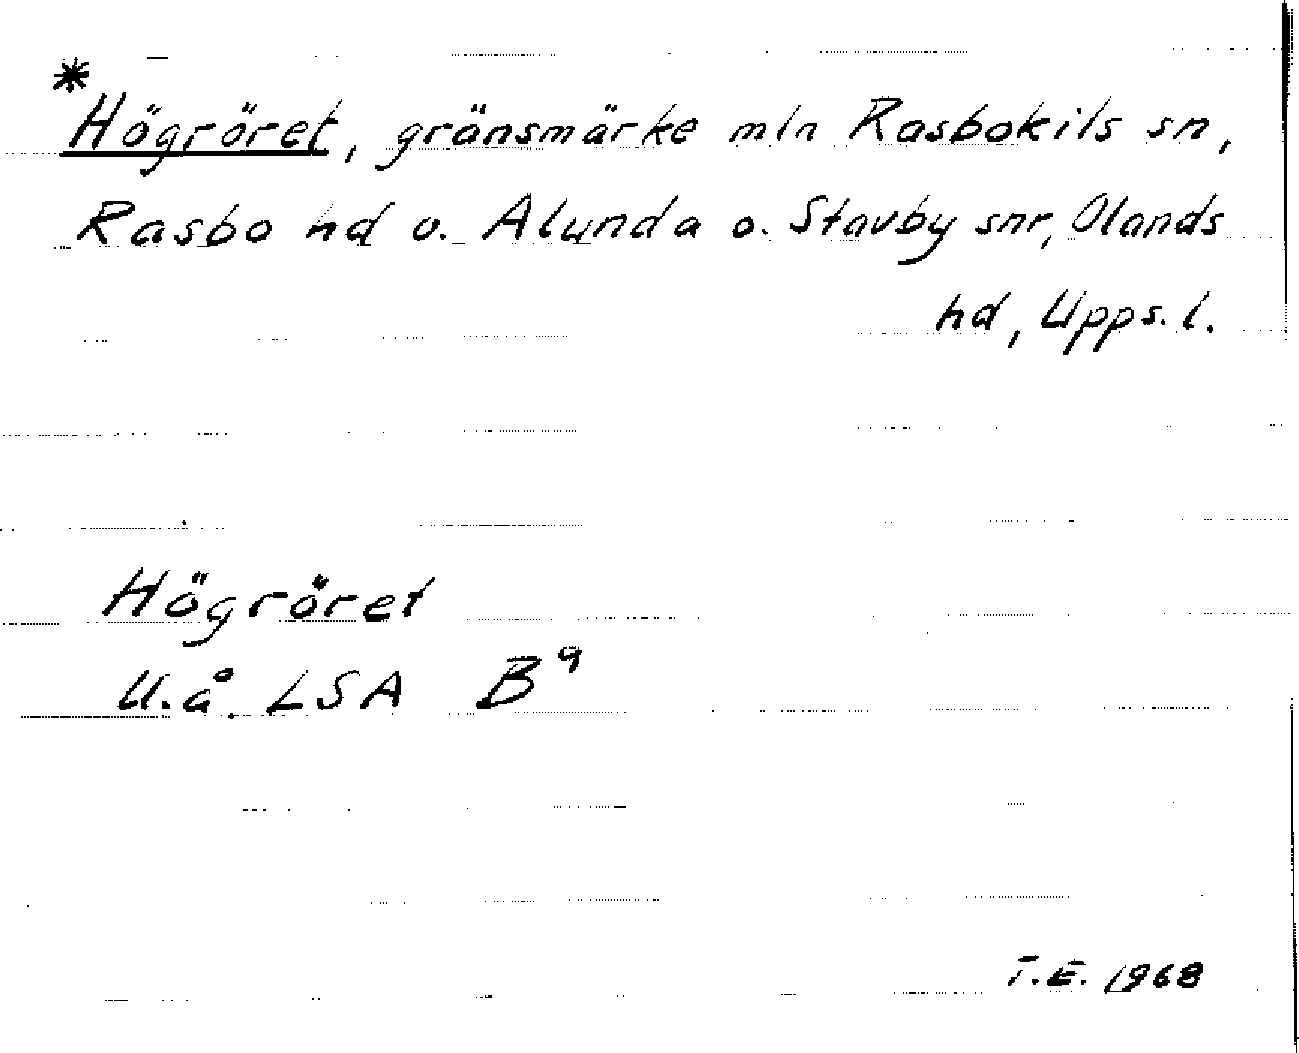 *Högröret, gränsmärke mln Rasbokils sn,
Rasbo hd o. Alunda o. Stavby snr, Olands
hd, Upps. l.
Högröret
U.å. LSA B⁹
T.E. 1968